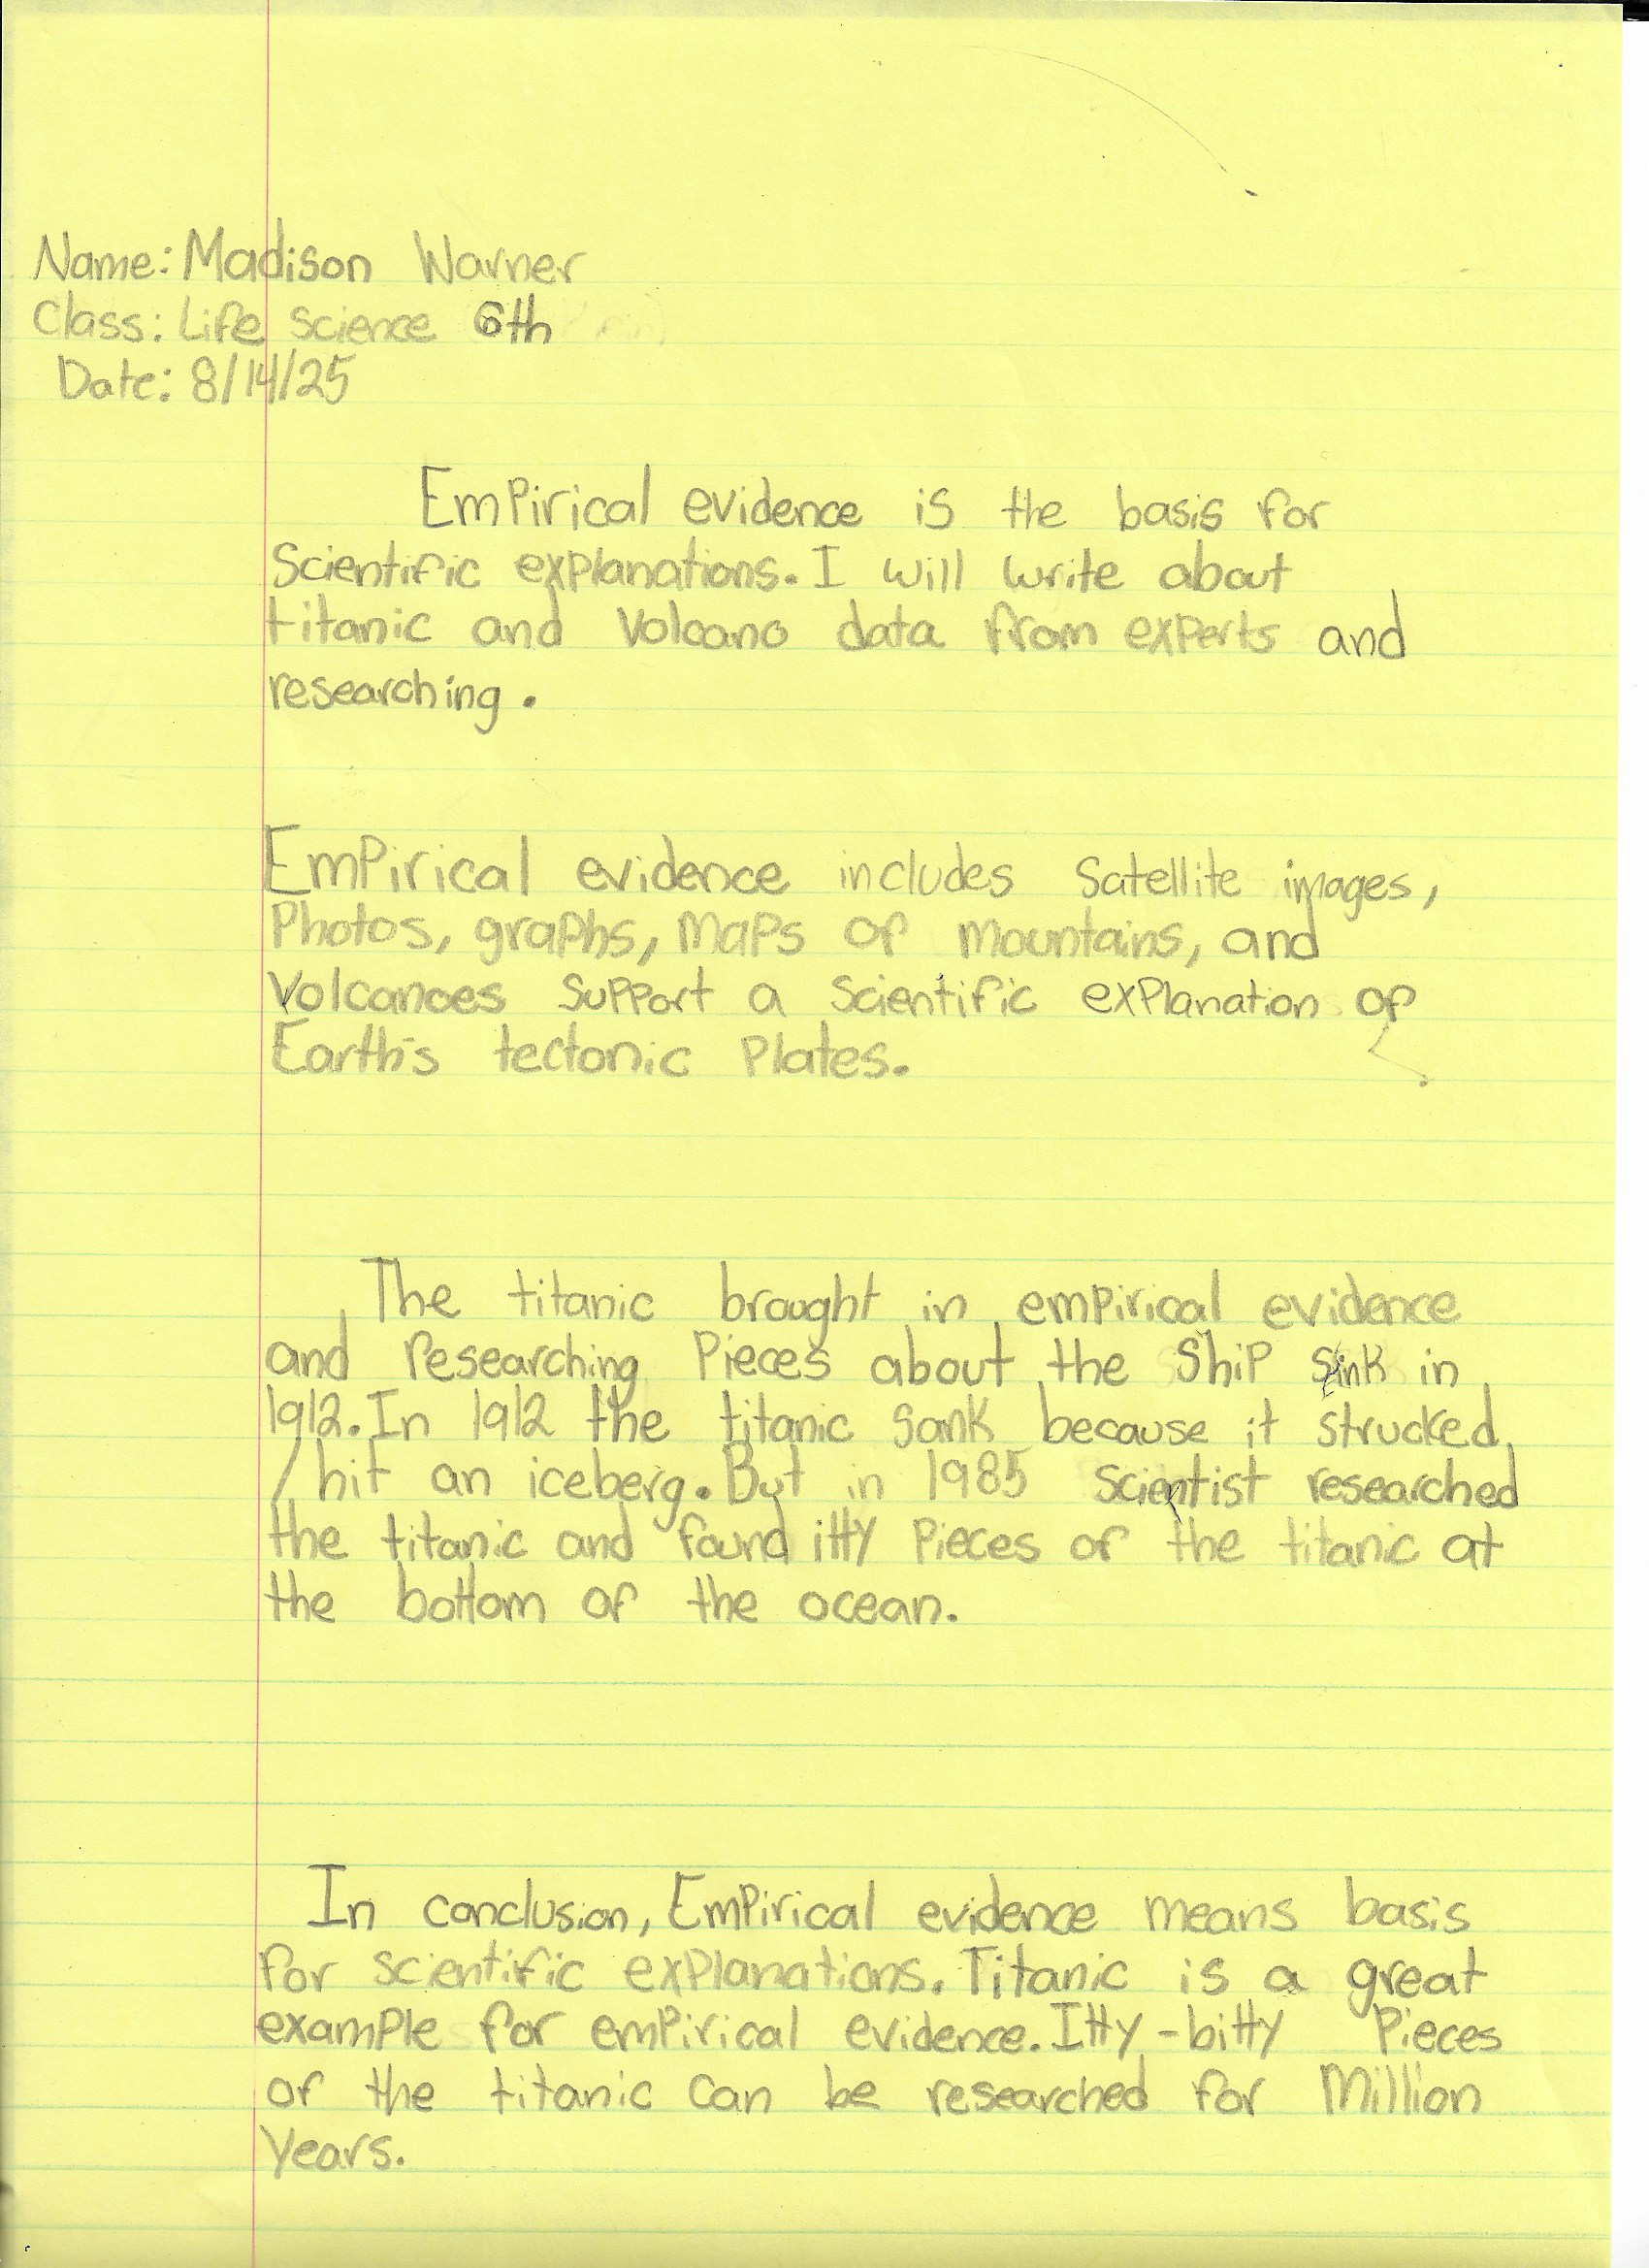 Name: Madison Warner
Class: Life science 6th
Date: 8/14/25
Empirical evidence is the basis for
Scientific explanations. I will write about
titanic and Volcano data from experts and
researching.
Empirical evidence includes Satellite images,
Photos, graphs, Maps of mountains, and
Volcanoes support a scientific explanation of
Earth's tectonic Plates.
The titanic brought in empirical evidence
and researching Pieces about the Ship Sink in
1912. In 1912 the titanic sank because it strucked
/ hit an iceberg. But in 1985 scientist researched
the titanic and found itty Pieces of the titanic at
the bottom of the ocean.
In conclusion, Empirical evidence means basis
for scientific explanations. Titanic is a great
example for empirical evidence. Itty-bitty Pieces
of the titanic can be researched for Million
Years.